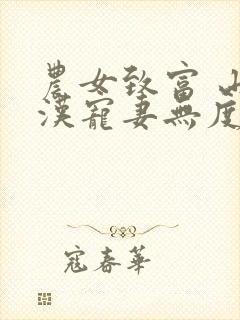 農女致富 山
漢寵妻無度
寇春華